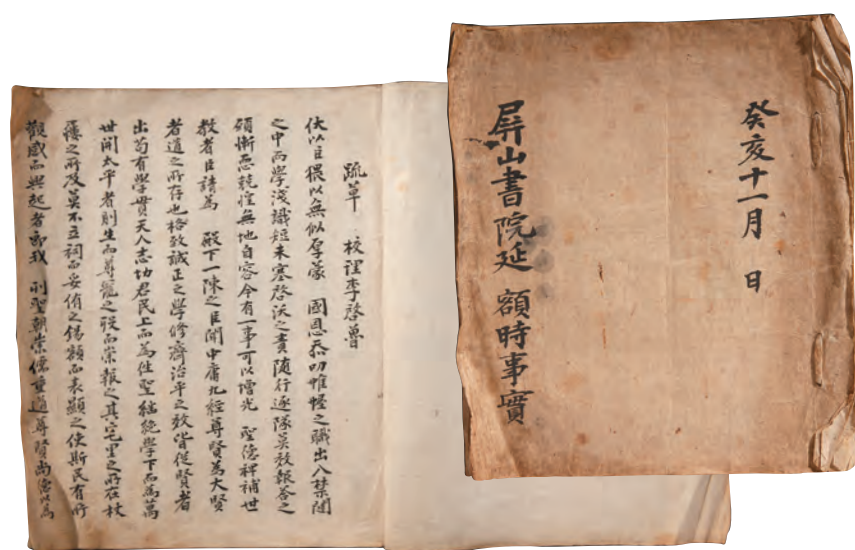 癸亥十一月 日
屛山書院延 額時事實
疏草 校理李啓魯
伏以臣猥以無似厚蒙 國恩忝叨帷幄之職出入禁闥
之中而學淺識短未塞啓沃之責隨行逐隊莫效報答之
願慚恧兢惶無地自容今有一事可以增光 聖德裨補世
敎者臣請爲 殿下一陳之臣聞中庸九經尊賢爲大賢
者道之所存也格致誠正之學修齊治平之效皆從賢者
出苟有學貫天人志切君民上而爲往聖繼絶學下而爲萬
世開太平者則生而尊寵之歿而崇報之其宅里之所在杖
屨之所及莫不立祠而妥侑之錫額而表顯之使斯民有所
觀感而興起者卽我 列聖朝崇儒重道尊賢尙德以爲